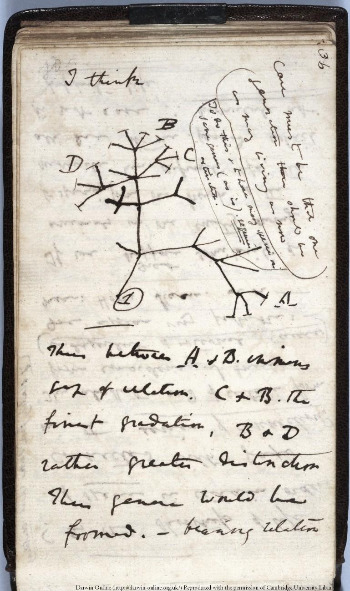 36
I think
Case must be that one
generation then should be
as many living as now
To do this & to have many species in
same genus (as is) requires
extinction.
B
C
D
A
1
Thus between A & B. immens
gap of relation. C & B. the
finest gradation, B & D
rather greater distinction
Thus genera would be
formed. — bearing relation
Darwin Online (http://darwin-online.org.uk/) Reproduced with the permission of Cambridge University Libra